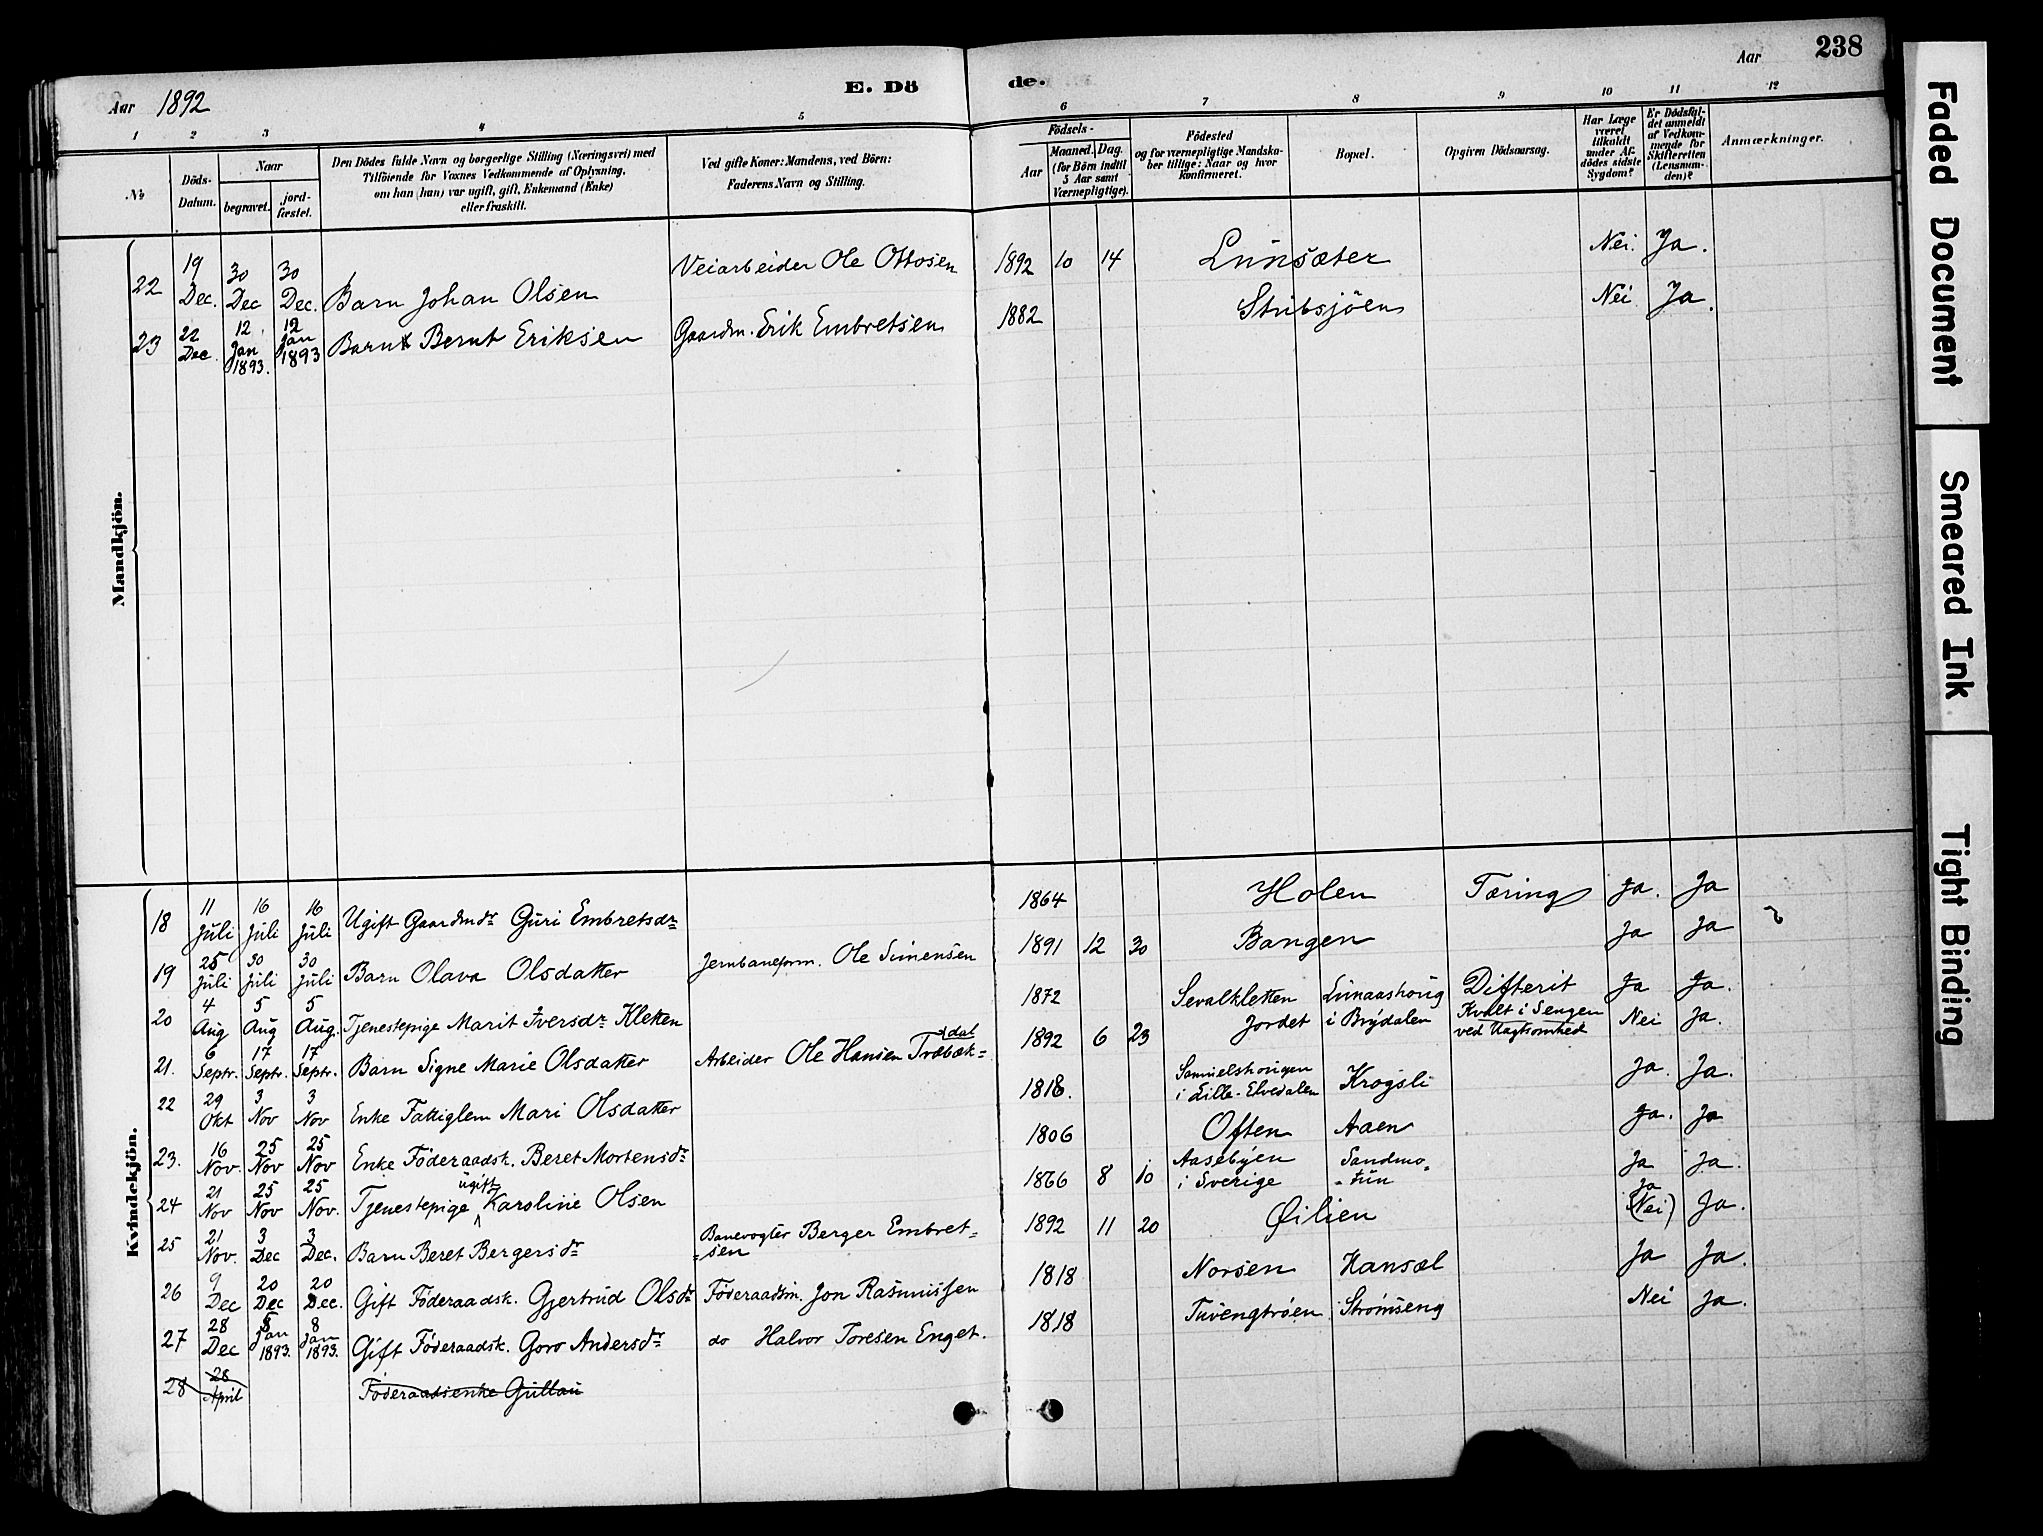 Aar 1892
E. Dö
de.
Aar
238
1 2 3 4 5 6 7 8 9 10 11 12
No
Döds-Datum.
Naar
begravet.
jord-fæstet.
Den Dödes fulde Navn og borgerlige Stilling (Næringsvei) med
Tilföiende for Voxnes Vedkommende af Oplysning,
om han (hun) var ugift, gift, Enkemand (Enke)
eller fraskilt.
Ved gifte Koner: Mandens, ved Börn:
Faderens Navn og Stilling.
Födsels-
Aar
Maaned. Dag.
(for Börn indtil
5 Aar samt
Værnepligtige).
Födested
og for værnepligtige Mandska-
ber tillige: Naar og hvor
konfirmeret.
Bopæl.
Opgiven Dödsaarsag.
Har Læge
været
tilkaldt
under Af-
dödes sidste
Sygdom?
Er Dödsfal-
det anmeldt
af Vedkom-
mende for
Skifteretten
(Lensman-
den)?
Anmærkninger.
Mandkjön.
22 19 Dec. 30 Dec 30 Dec. Barn Johan Olsen Veiarbeider Ole Ottosen 1892 10 14 Lunsæter Nei. Ja.
23 22 Dec. 12 Jan 1893. 12 Jan 1893 Barn Bernt Eriksen Gaardm. Erik Embretsen 1882 Stribsjöen Nei Ja.
Kvindekjön.
18 11 Juli 16 Juli 16 Juli Ugift Gaardmdr Guri Embretsdr 1864 Holen Tæring Ja. Ja
19 25 Juli 30 Juli 30 Juli Barn Olava Olsdatter Jernbaneform. Ole Simensen 1891 12 30 Bangen Ja Ja
20 4 Aug 5 Aug 5 Aug. Tjenestepige Marit Iversdr Kletten 1872 Sevalkletten Lunaashoug Difterit Ja Ja.
21. 6 Septr. 17 Septr. 17 Septr. Barn Signe Marie Olsdatter Arbeider Ole Hansen Træbæk= dal 1892 6 23 Jordet i Brydalen Kvalt i Sengen ved Uagtsomhed Nei Ja.
22 29 Okt 3 Nov 3 Nov Enke Fattiglem Mari Olsdatter 1818. Samuelshougen i Lille-Elvedalen Krogsli Ja. Ja.
23. 16 Nov. 25 Nov 25 Nov Enke Föderaadsk. Beret Mortensdr 1806 Often Aaen Ja. Ja
24 21 Nov 25 Nov 25 Nov. Tjenestepige ugift Karoline Olsen 1866 8 10 Aasebyen i Sverige Sandmo= =tun Ja Ja.
25 21 Nov. 3 Dec 3 Dec. Barn Beret Bergersdr Banevogter Berger Embret= =sen 1892 11 20 Øilien Ja (Nei) Ja.
26 9 Dec 20 Dec 20 Dec. Gift Föderaadsk. Gjertrud Olsdr Föderaadsm. Jon Rasmussen 1818 Norsen Hansæl Ja Ja.
27 28 Dec 8 Jan 1893. 8 Jan 1893. Gift Föderaadsk. Goro Andersdr do Halvor Toresen Enget. 1818 Tuvengtröen Strömseng Nei Ja.
28 28 April Föderaadsenke Gullau
Faded Document
Smeared Ink
Tight Binding